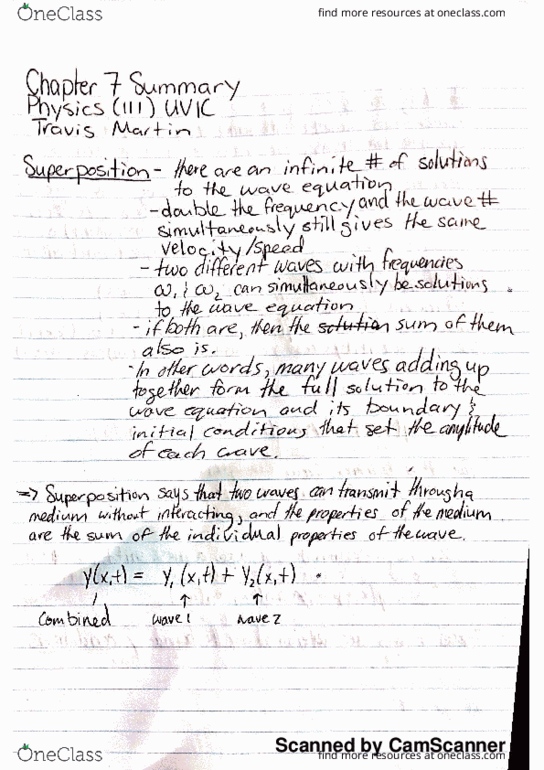 OneClass
find more resources at oneclass.com
Chapter 7 Summary
Physics (111) UVIC
Travis Martin
Superposition - there are an infinite # of solutions
to the wave equation
- double the frequency and the wave #
simultaneously still gives the same
velocity/speed
- two different waves with frequencies
ω₁ & ω₂ can simultaneously be solutions
to the wave equation
- if both are, then the solution sum of them
also is.
- In other words, many waves adding up
together form the full solution to the
wave equation and its boundary &
initial conditions that set the amplitude
of each wave.
=> Superposition says that two waves can transmit through a
medium without interacting, and the properties of the medium
are the sum of the individual properties of the wave.
y(x,t) = y₁(x,t) + y₂(x,t)
combined wave 1 wave 2
Scanned by CamScanner
OneClass
find more resources at oneclass.com